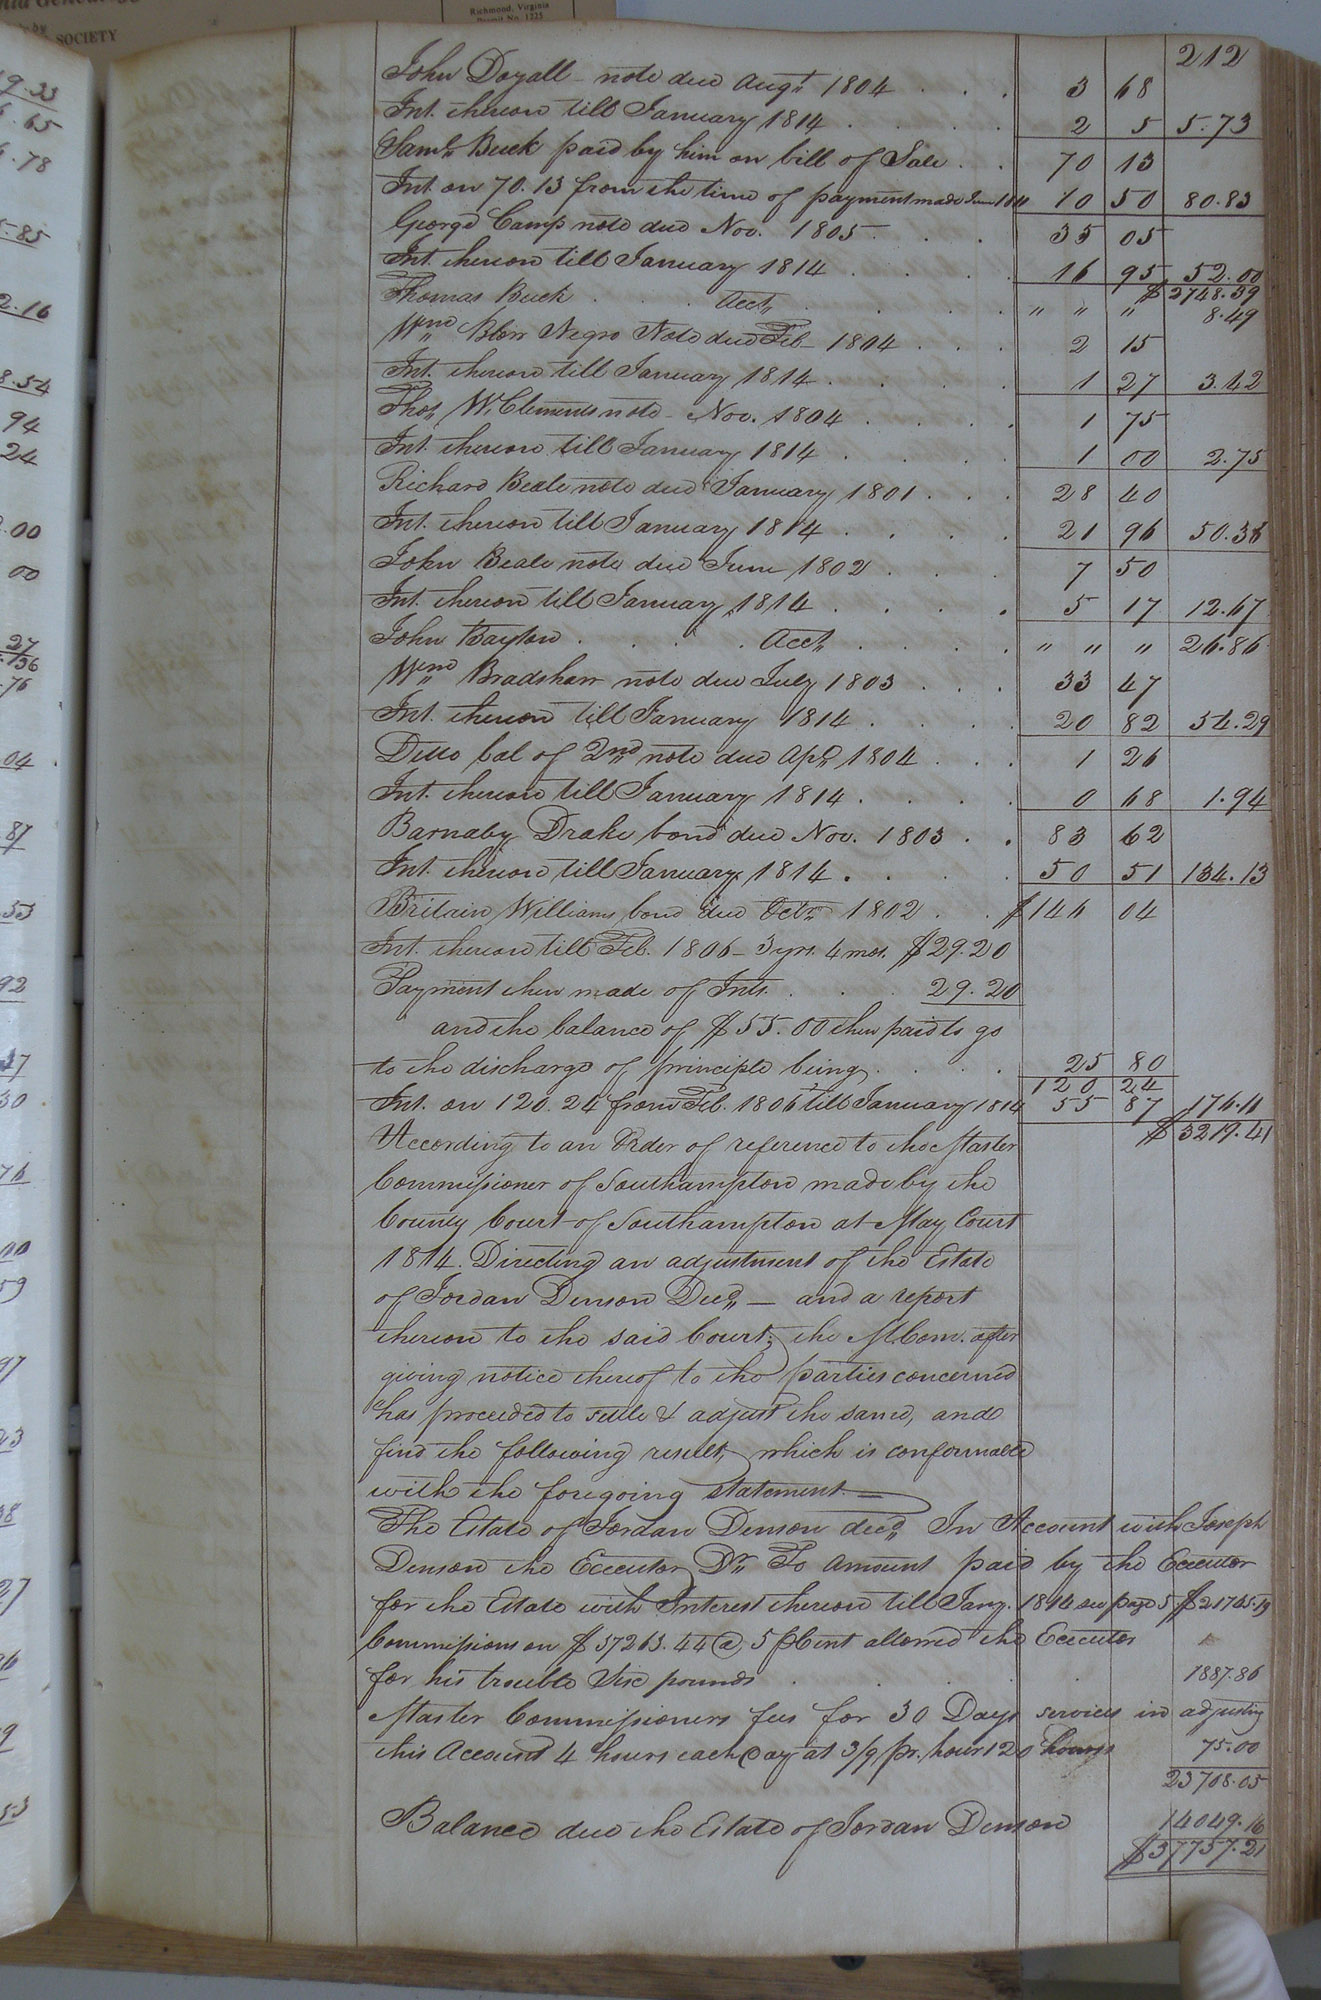 Richmond, Virginia
Permit No. 1225
SOCIETY
212
John Doyall note due Augt. 1804 . . . 3 68
Int. thereon till January 1814 . . . 2 5 5.73
Saml. Buck paid by him on bill of Sale . . 70 13
Int. on 70.13 from the time of payment made June 1811 10 50 80.83
George Camp note due Nov. 1805 . . . 35 05
Int. thereon till January 1814 . . . 16 95 52.00
$ 2748.39
Thomas Buck . . Acct. . . . " " " 8.49
Wm. Blow Negro Note due Feb 1804 . . . 2 15
Int. thereon till January 1814 . . . 1 27 3.42
Thos. W. Clements note Nov. 1804 . . . 1 75
Int. thereon till January 1814 . . . 1 00 2.75
Richard Beale note due January 1801 . . . 28 40
Int. thereon till January 1814 . . . 21 96 50.36
John Beale note due June 1802 . . . 7 50
Int. thereon till January 1814 . . . 5 17 12.67
John Bayton . . . Acct. . . . " " " 26.86
Wm. Bradshaw note due July 1803 . . . 33 47
Int. thereon till January 1814 . . . 20 82 54.29
Ditto bal of 2nd note due Apl. 1804 . . . 1 26
Int. thereon till January 1814 . . . 0 68 1.94
Barnaby Drake bond due Nov. 1803 . . 83 62
Int. thereon till January 1814 . . . 50 51 134.13
Britain Williams bond due Octr. 1802 . . $146 04
Int. thereon till Feb. 1806 - 3 yrs. 4 mos. $29.20
Payment then made of Int. . . . 29.20
and the balance of $55.00 then paid to go
to the discharge of principle being . . . 25 80
120 24
Int. on 120.24 from Feb. 1806 till January 1814 55 87 176.11
$ 3219.41
According to an Order of reference to the Master
Commissioner of Southampton made by the
County Court of Southampton at May Court
1814. Directing an adjustment of the Estate
of Jordan Denson Decd. — and a report
thereon to the said Court; the M. Com. after
giving notice thereof to the parties concerned
has proceeded to settle & adjust the same, and
find the following result, which is conformable
with the foregoing statement. —
The Estate of Jordan Denson decd. In Account with Joseph
Denson the Executor Dr. To Amount paid by the Executor
for the Estate with Interest thereon till Jany. 1814 see page 5 $21745.19
Commissions on $37263.44 @ 5 pCent allowed the Executor
for his trouble Vise pounds . . . 1887.86
Master Commissioners fees for 30 Days services in adjusting
this Account 4 hours each day at 3/9 pr. hour 120 hours 75.00
23708.05
Balance due the Estate of Jordan Denson 14049.16
$37757.21